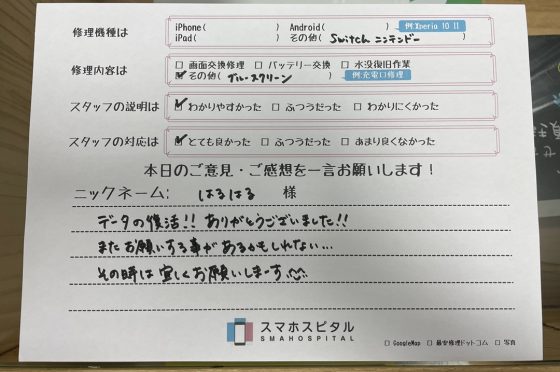 修理機種は iPhone( ) Android( ) 例:Xperia 10 II
iPad( ) その他( Switch ニンテンドー )
修理内容は □ 画面交換修理 □ バッテリー交換 □ 水没復旧作業
☑ その他( ブルースクリーン ) 例:充電口修理
スタッフの説明は ☑ わかりやすかった □ ふつうだった □ わかりにくかった
スタッフの対応は ☑ とても良かった □ ふつうだった □ あまり良くなかった
本日のご意見・ご感想を一言お願いします!
ニックネーム: はるはる 様
データの復活!! ありがとうございました!!
またお願いする事があるかもしれない...
その時は宜しくお願いしまーす
スマホスピタル
SMAHOSPITAL
□ GoogleMap □ 最安修理ドットコム □ 写真